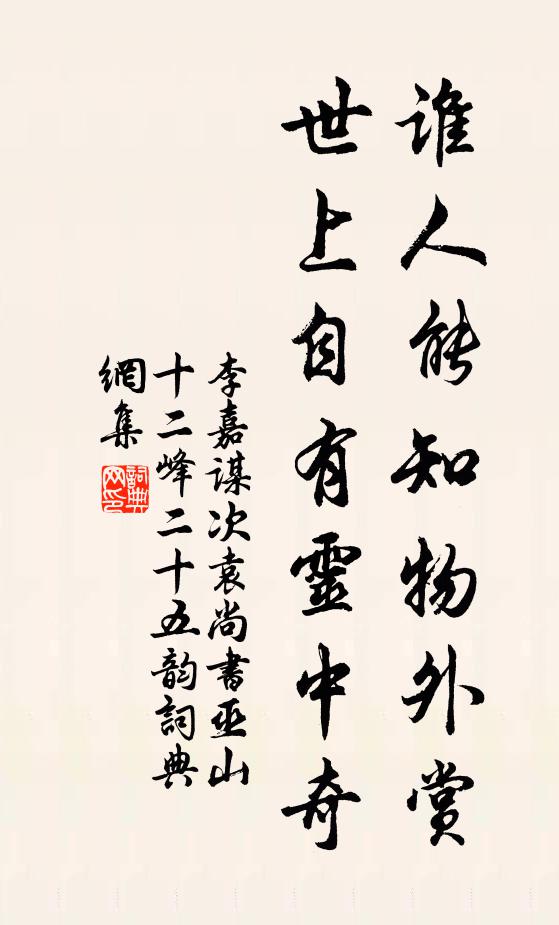 誰人能知物外賞
世上自有靈中奇
李嘉謀次袁尚書巫山
十二峰二十五韵詞典
網集
詞典
网印